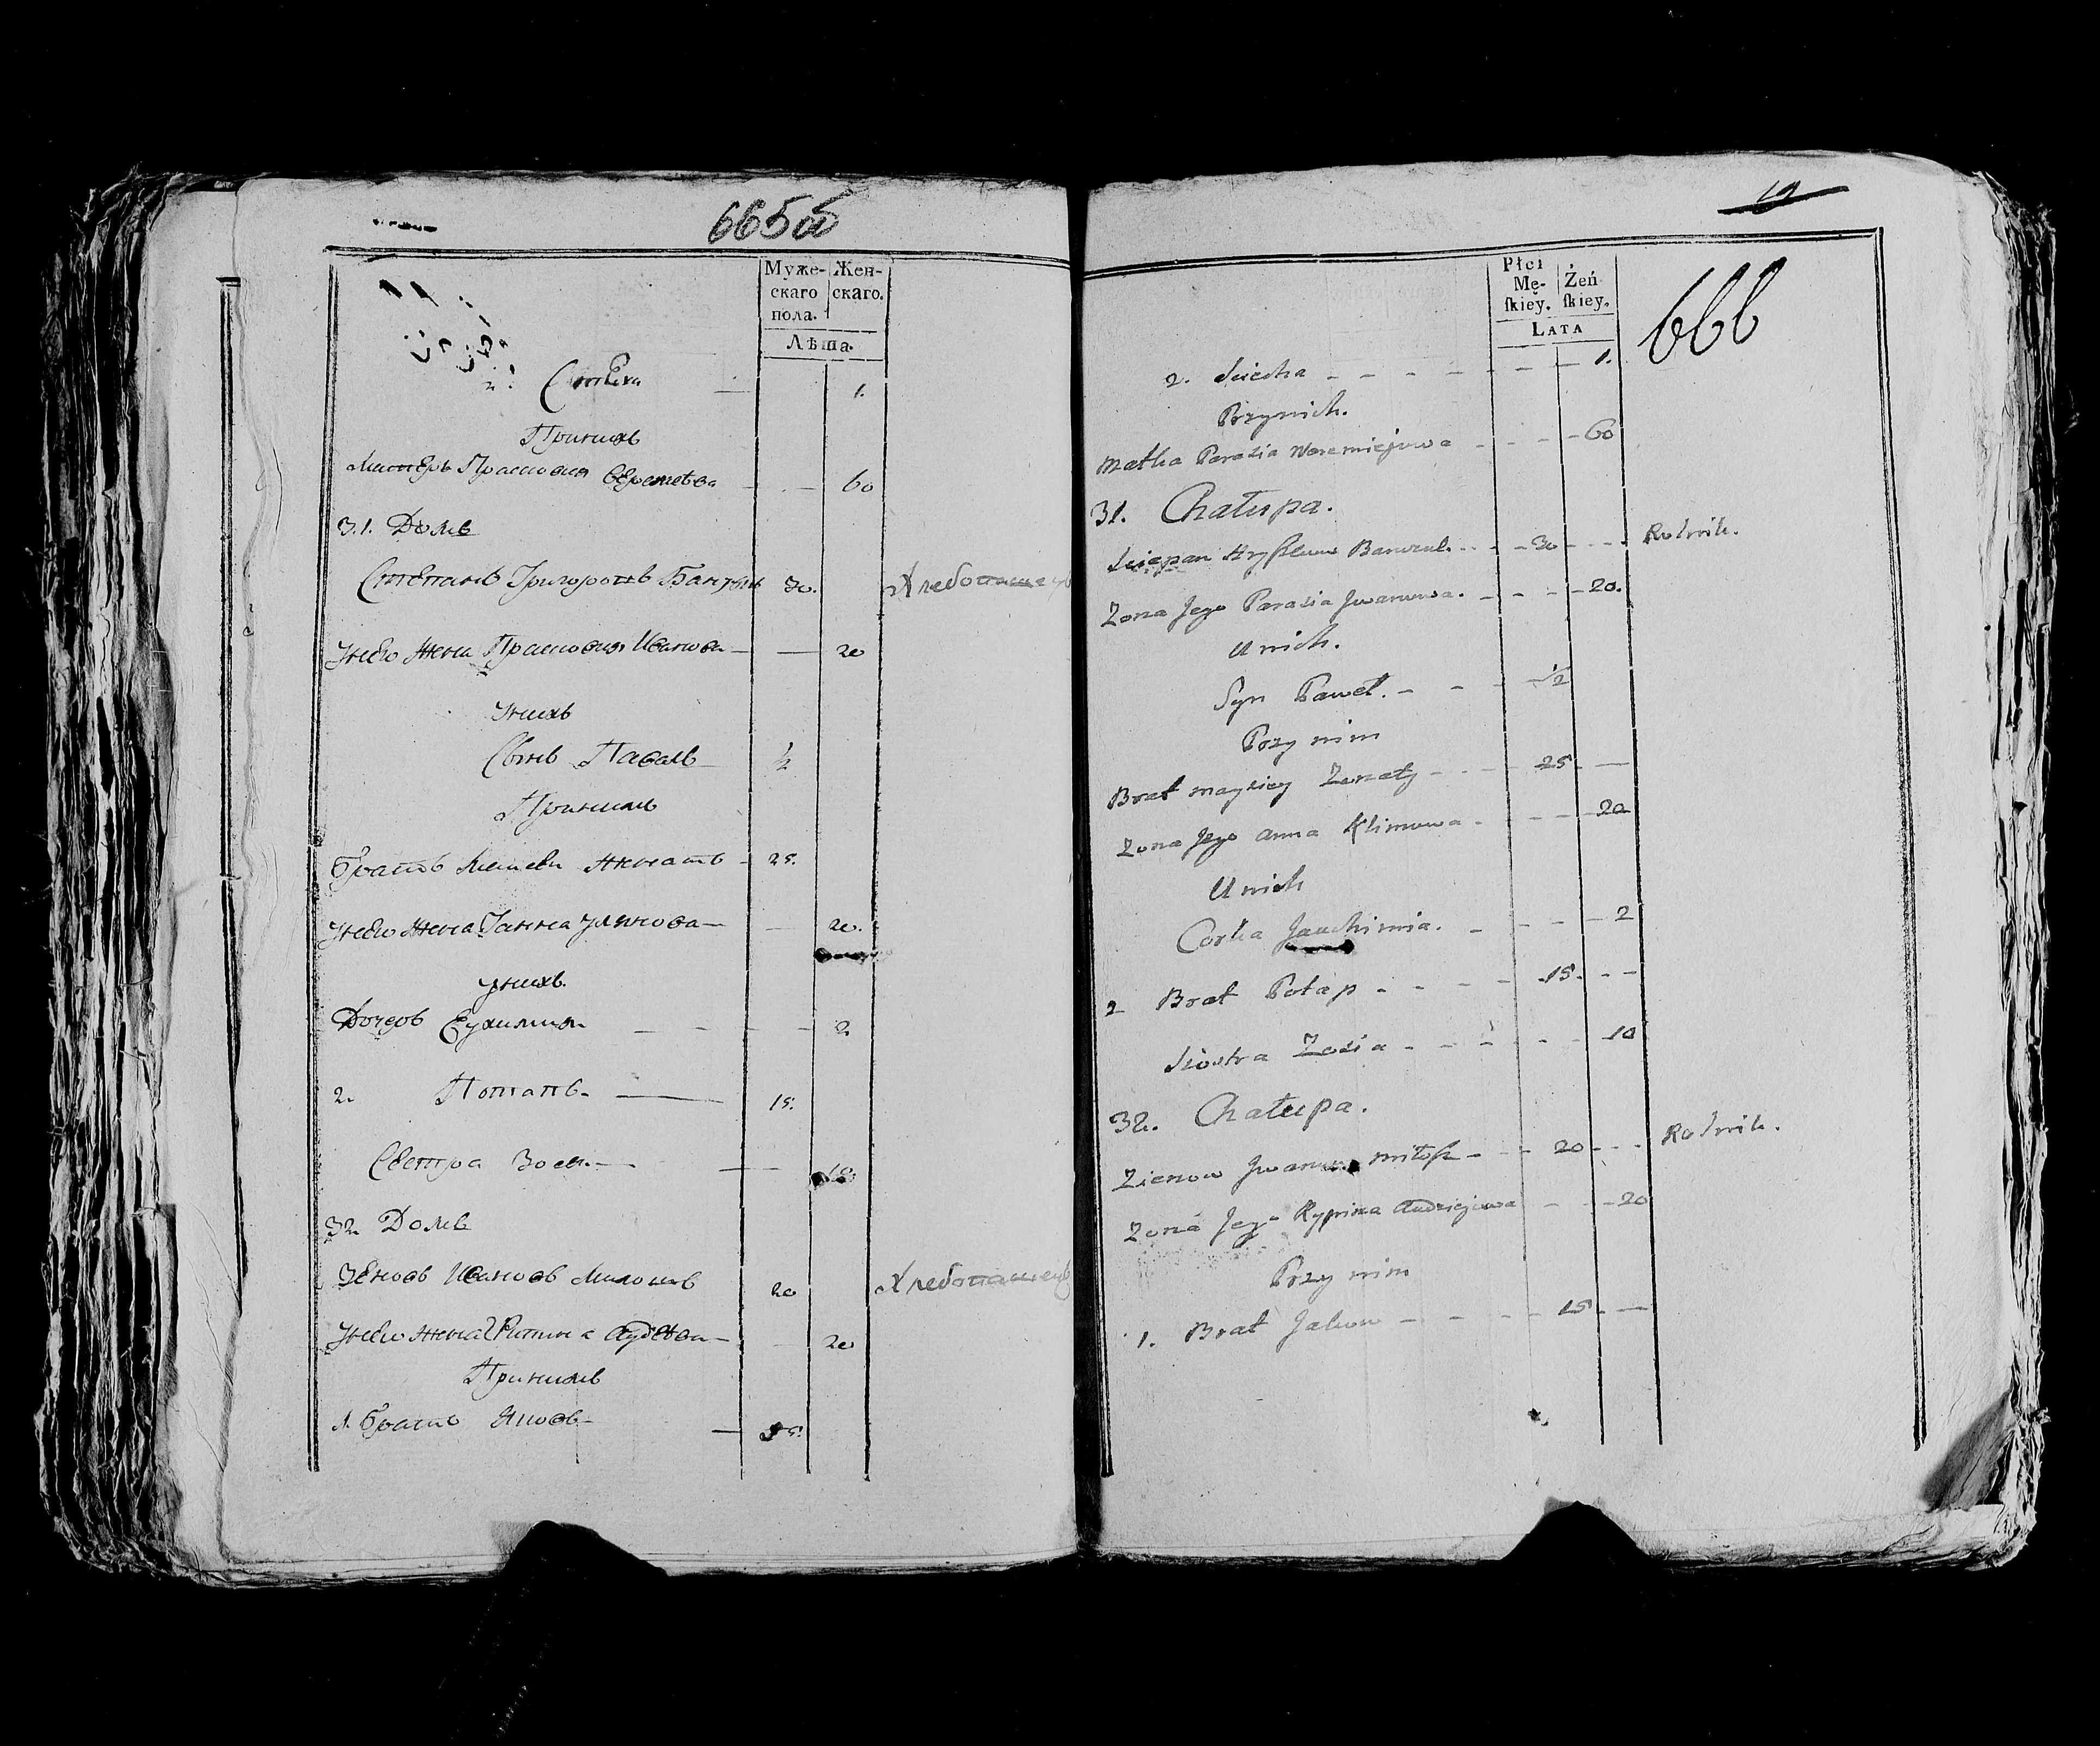 665об
Муже-
скаго
пола.
Жен-
скаго.
Лѣта.
1.
Принихъ
Матерь Прасковия Веремѣева 60
31. Домъ
Степанъ Григоровъ 30. Хлебопашецъ
Унево жена Прасковия Иванова 20
Унихъ
Сынъ Павалъ ½
Принимъ
братъ женатъ 25.
Унево жена Ганна 20.
унихъ.
Дочеръ Еухимия 2
2. Потапъ 15.
Сестра Зося 10.
32 Домъ
Зеновъ Ивановъ Милошъ 20 Хлебопашецъ
Унево жена 20
Принимъ
1. братъ Яковъ
Płci
Mę-
skiey.
Żeń
skiey.
LATA
666
2. 1.
Przynich.
Matka Parasia Waremiejowa 60
31. Chałupa.
Sciepan 30 Rolnik.
Zona Jego Parasia Jwanowa. 20.
U nich.
Syn Paweł. ½
Przy nim
Brat Zonaty 25
Zona Jego Anna Klimowa 20
U nich
Corka Jauchimia. 2
2 Brat Potap 15.
Siostra Zosia 10
32. Chałupa.
Zienow Jwanow Miłosz 20 Rolnik.
Zona Jego Kypina Audziejowa 20
Przy nim
1. Brat Jakow 15